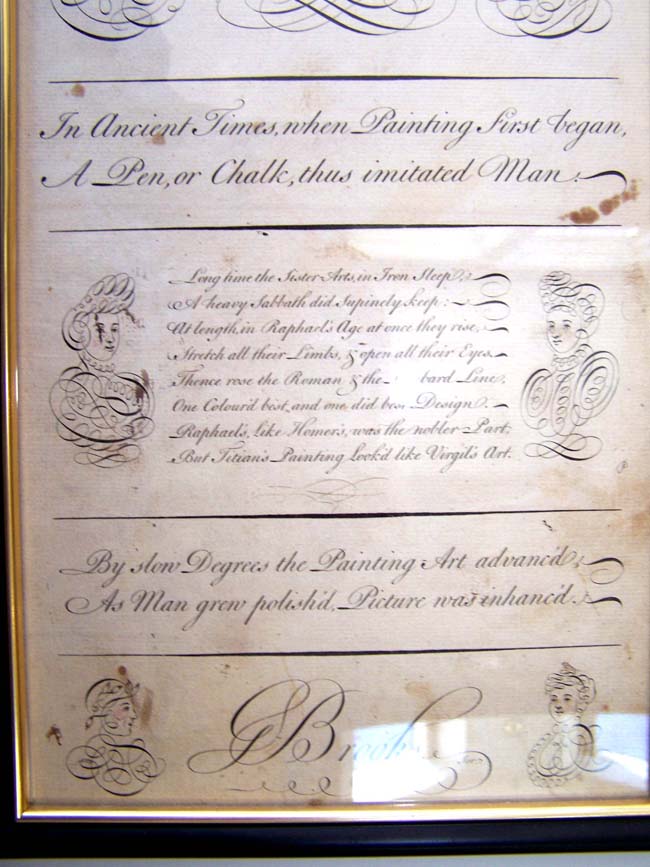 In Ancient Times, when Painting First began,
A Pen, or Chalk, thus imitated Man:
Long time the Sister Arts, in Iron Sleep,
A heavy Sabbath did Supinely keep:
At length, in Raphael's Age at once they rise,
Stretch all their Limbs, & open all their Eyes.
Thence rose the Roman & the bard Line,
One Colour'd best, and one did bes Design.
Raphael's, like Homer's, was the nobler Part,
But Titian's Painting Look'd like Virgil's Art.
By slow Degrees the Painting Art advanc'd,
As Man grew polish'd, Picture was inhanc'd.
Brooks